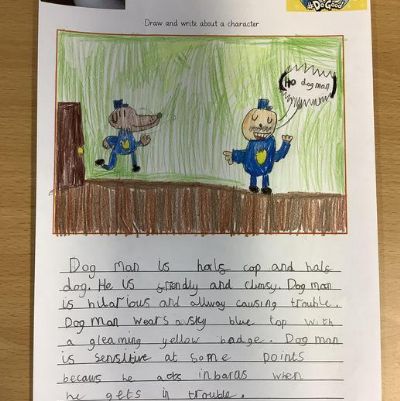 #DoGood
Draw and write about a character
Ho dog man
Dog man is hals cop and hals
dog. He is friendly and clumsy. Dog man
is hilarious and allway causing trouble.
Dog Man wears a sky blue top with
a gleaming yellow badge. Dog man
is sensitive at some points
becaus he acts inbaras when
he gets in trouble.